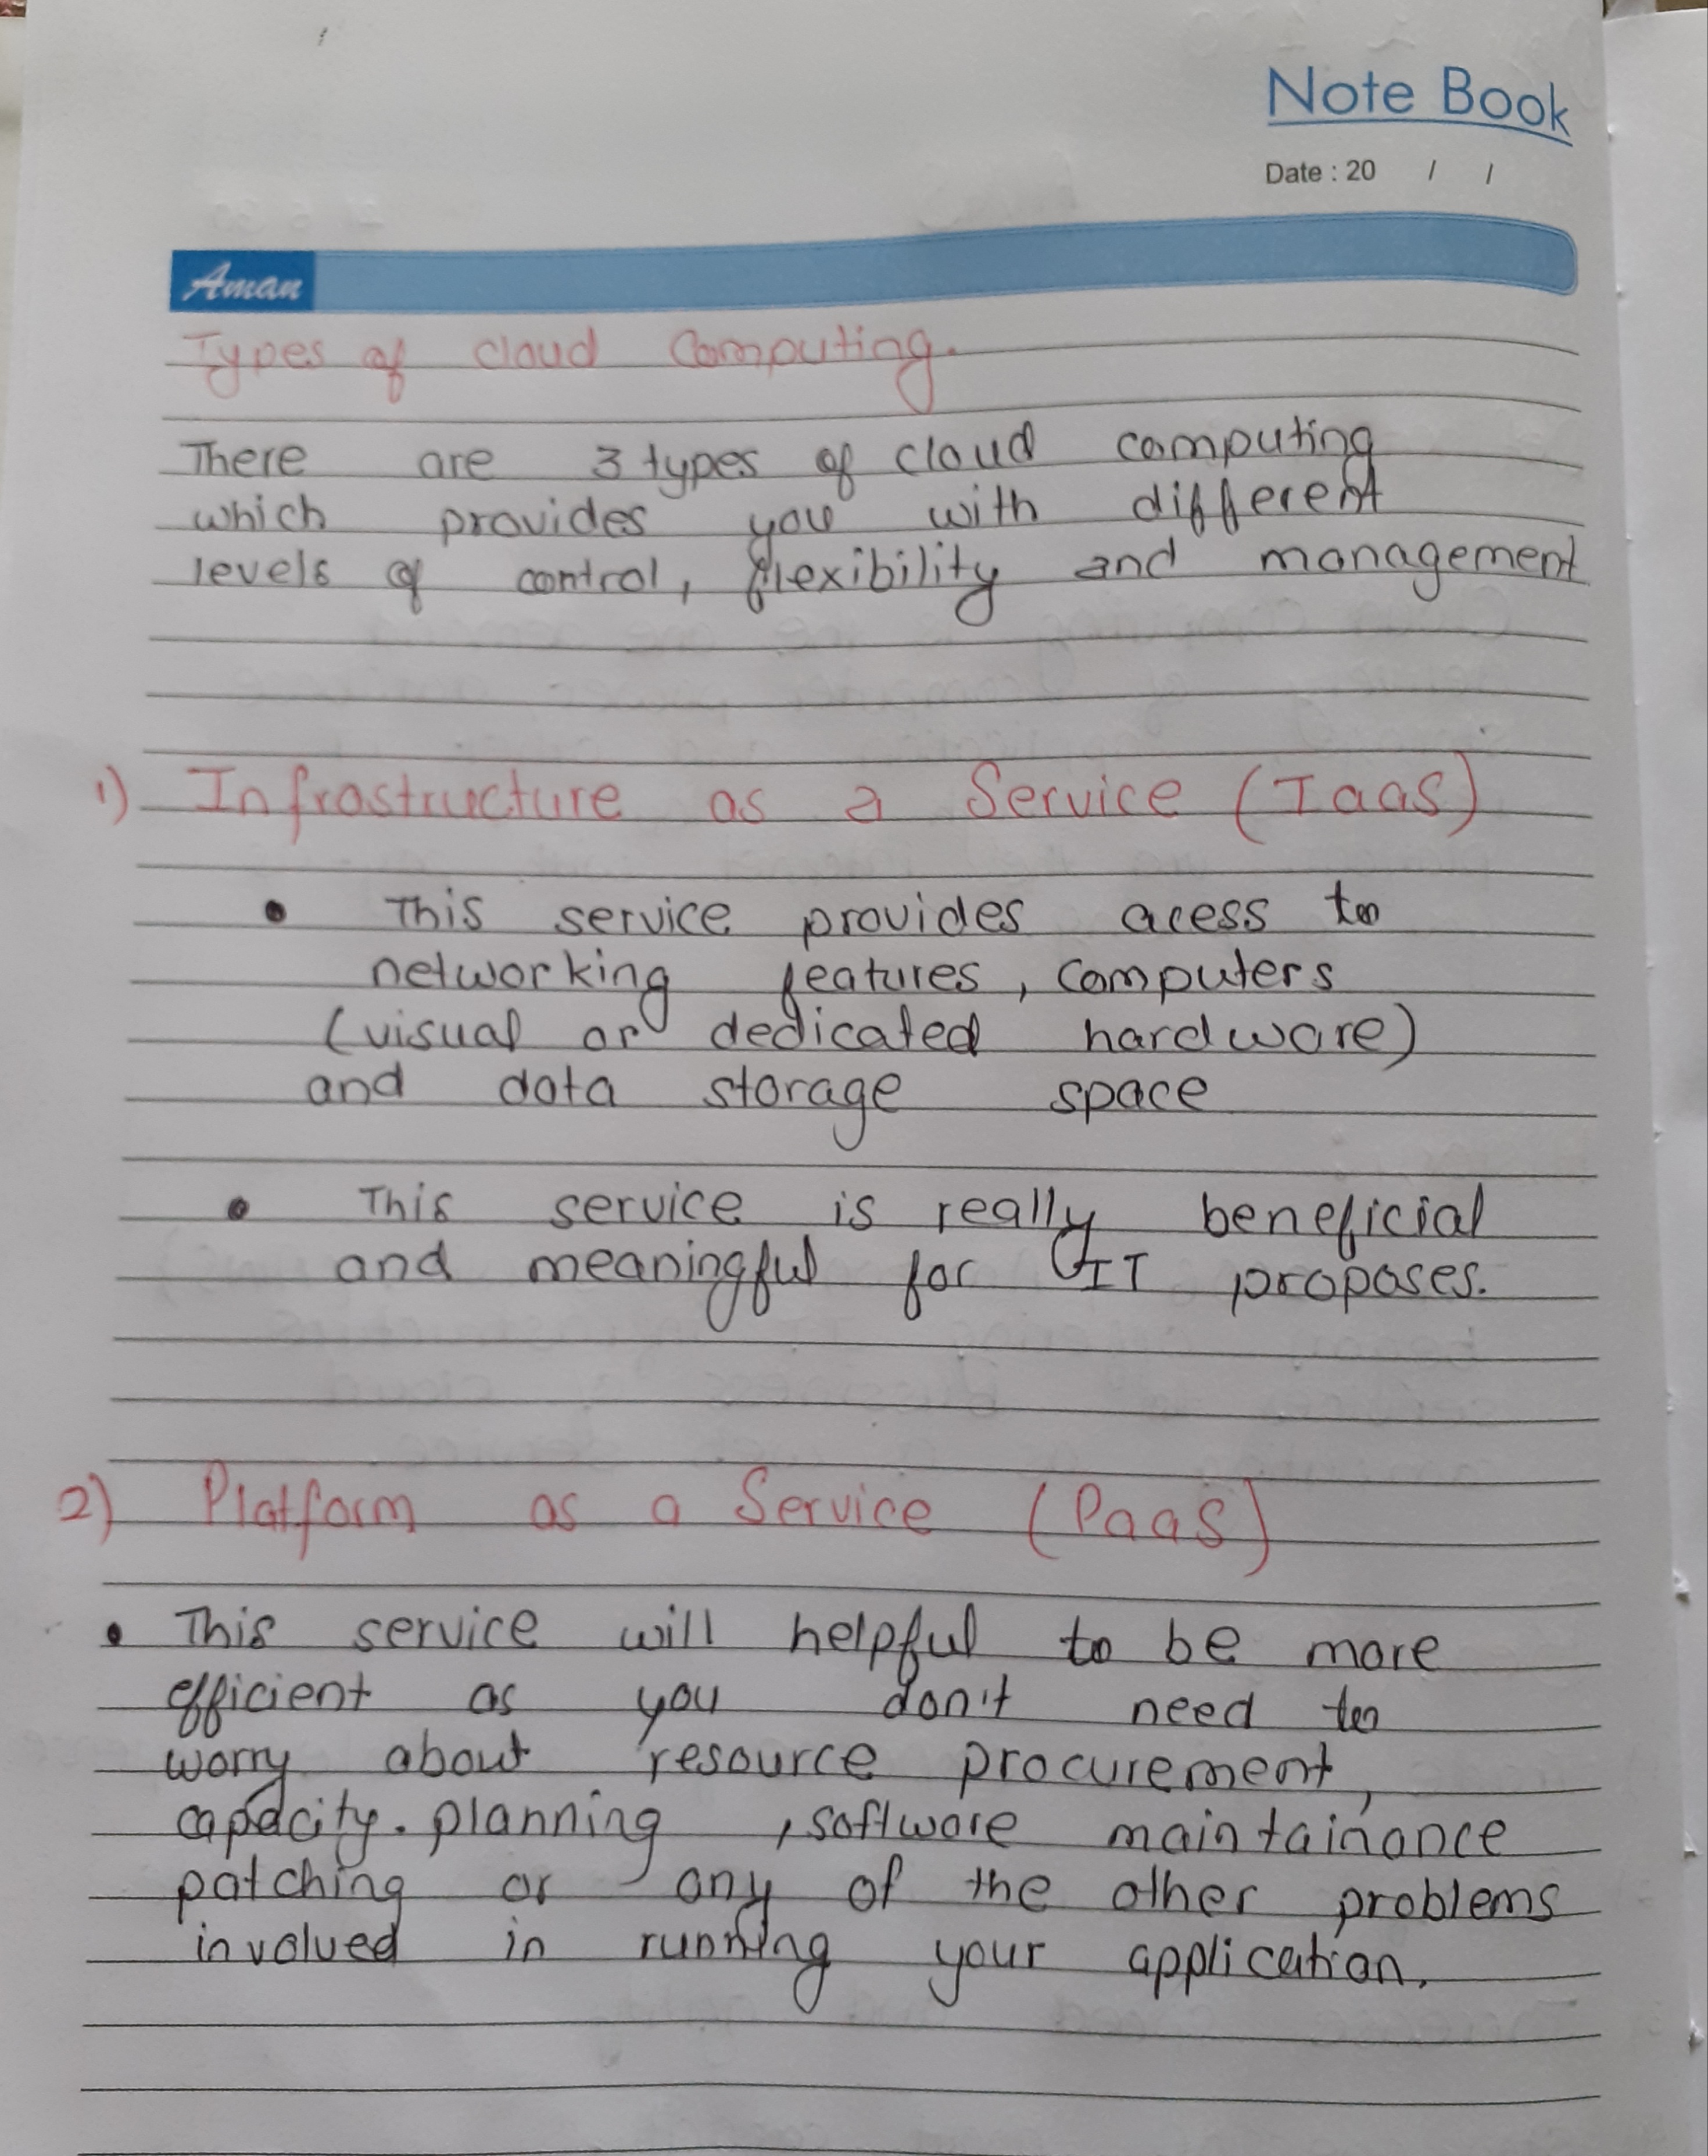 Note Book
Date : 20 / /
Aman
Types of cloud Computing.
There are 3 types of cloud computing
which provides you with different
levels of control, flexibility and management
1) Infrastructure as a Service (IaaS)
• This service provides acess to
networking features, computers
(visual or dedicated hardware)
and data storage space
• This service is really beneficial
and meaningful for IT proposes.
2) Platform as a Service (PaaS)
• This service will helpful to be more
efficient as you don't need to
worry about resource procurement,
capacity. planning , software maintainance
patching or any of the other problems
involved in running your application.